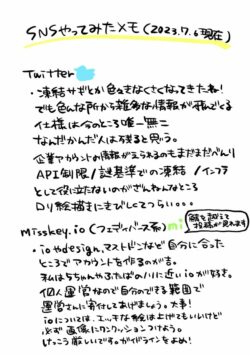 SNSやってみたメモ(2023.7.6現在)
Twitter
・凍結サギとか色々きなくさくなってきたね!
でも色んな所から雑多な情報が飛んでくる
仕様は今のところ唯一無二
なんだかんだ人は残ると思う。
企業アカウントの情報がえられるのもまだまだべんり
API制限/謎基準での凍結 /インフラ
として役に立たないのがざんねんなところ
ロリ絵描にきびしくてつらい。。。
Misskey.io (フェディバース系) mi
鯖を越えて
投稿が見れます
・ioやdesign、マストドンなど自分に合った
ところでアカウントを作るのが吉。
私は5ちゃんやふたばのノリに近いioが好き。
個人運営なので自分のできる範囲で
運営さんに寄付してあげましょう。大事!
ioについては、エッチな絵は上げてもいいけど
必ず画像にワンクッションつけよう。
けっこう厳しいです。ガイドラインをよめ!